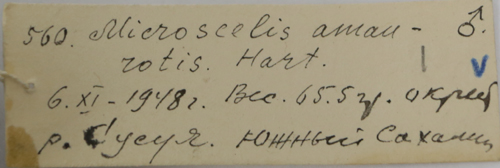 560. Microscelis aman- ♂.
rotis. Hart. | v
6. XI - 1948г. Вес. 65.5гр. окрест
р. Сусуя. Южный Сахалин